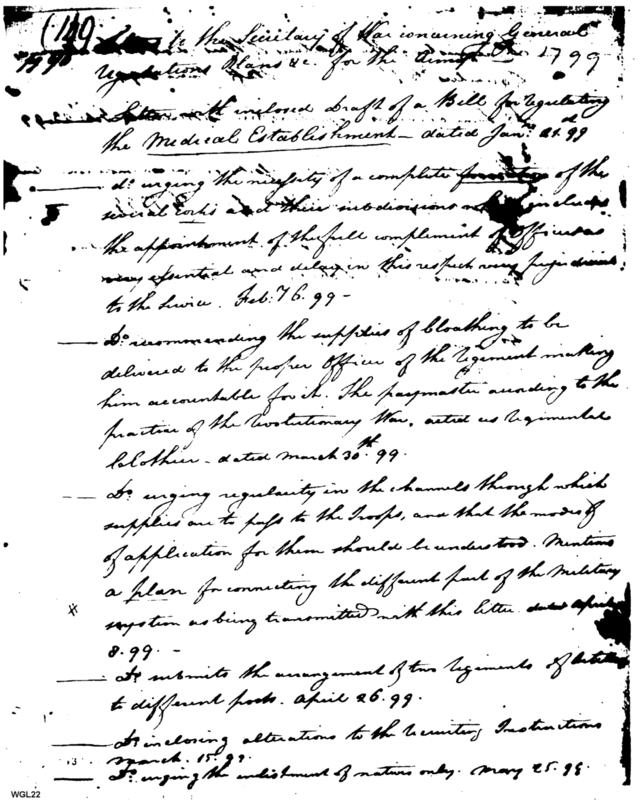 (119
to the Secretary of War concerning General
regulations Plans &c. for the Army 1799
Letter with inclosed Draft of a Bill for regulating
the Medical Establishment - dated Jany. 21. 99
Do. urging the necessity of a complete formation of the
several Corps and their subdivisions which includes
the appointment of the full complement of Officers as
very essential and delay in this respect very prejudicial
to the service. Feb: 16. 99 -
Do. recommending the supplies of Cloathing to be
delivered to the proper Officer of the regiment making
him accountable for it. The paymaster according to the
practice of the revolutionary War, acted as regimental
Clothier - dated March 30th. 99.
Do. urging regularity in the channels through which
supplies are to pass to the Troops, and that the modes of
of application for them should be understood. Mentions
a plan for connecting the different part of the Military
system as being transmitted with this letter dated April
8. 99. -
Do. submits the arrangement of two regiments of
to different posts. April 26. 99.
Do. inclosing alterations to the recruiting Instructions
March. 15. 99.
Do. urging the enlistment of natives only. May 25. 99.
WGL22